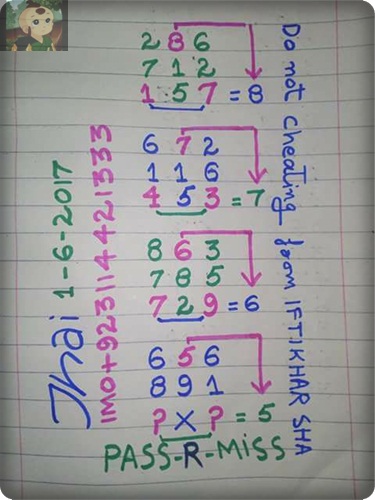 Do not cheating from IFTIKHAR SHA
2 8 6
7 1 2
1 5 7 = 8
6 7 2
1 1 6
4 5 3 = 7
8 6 3
7 8 5
7 2 9 = 6
6 5 6
8 9 1
? X ? = 5
PASS-R-MISS
IMO+923114421333
Thai 1-6-2017